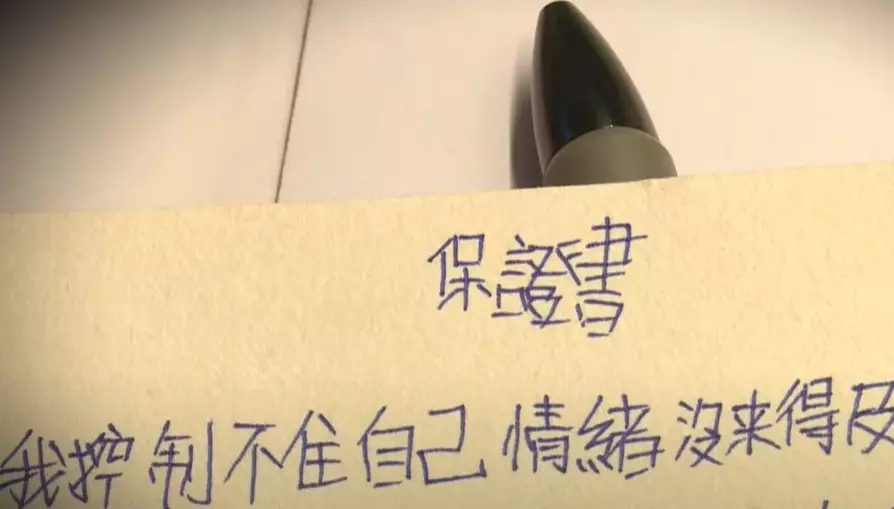 保證書
我控制不住自己情緒沒来得及